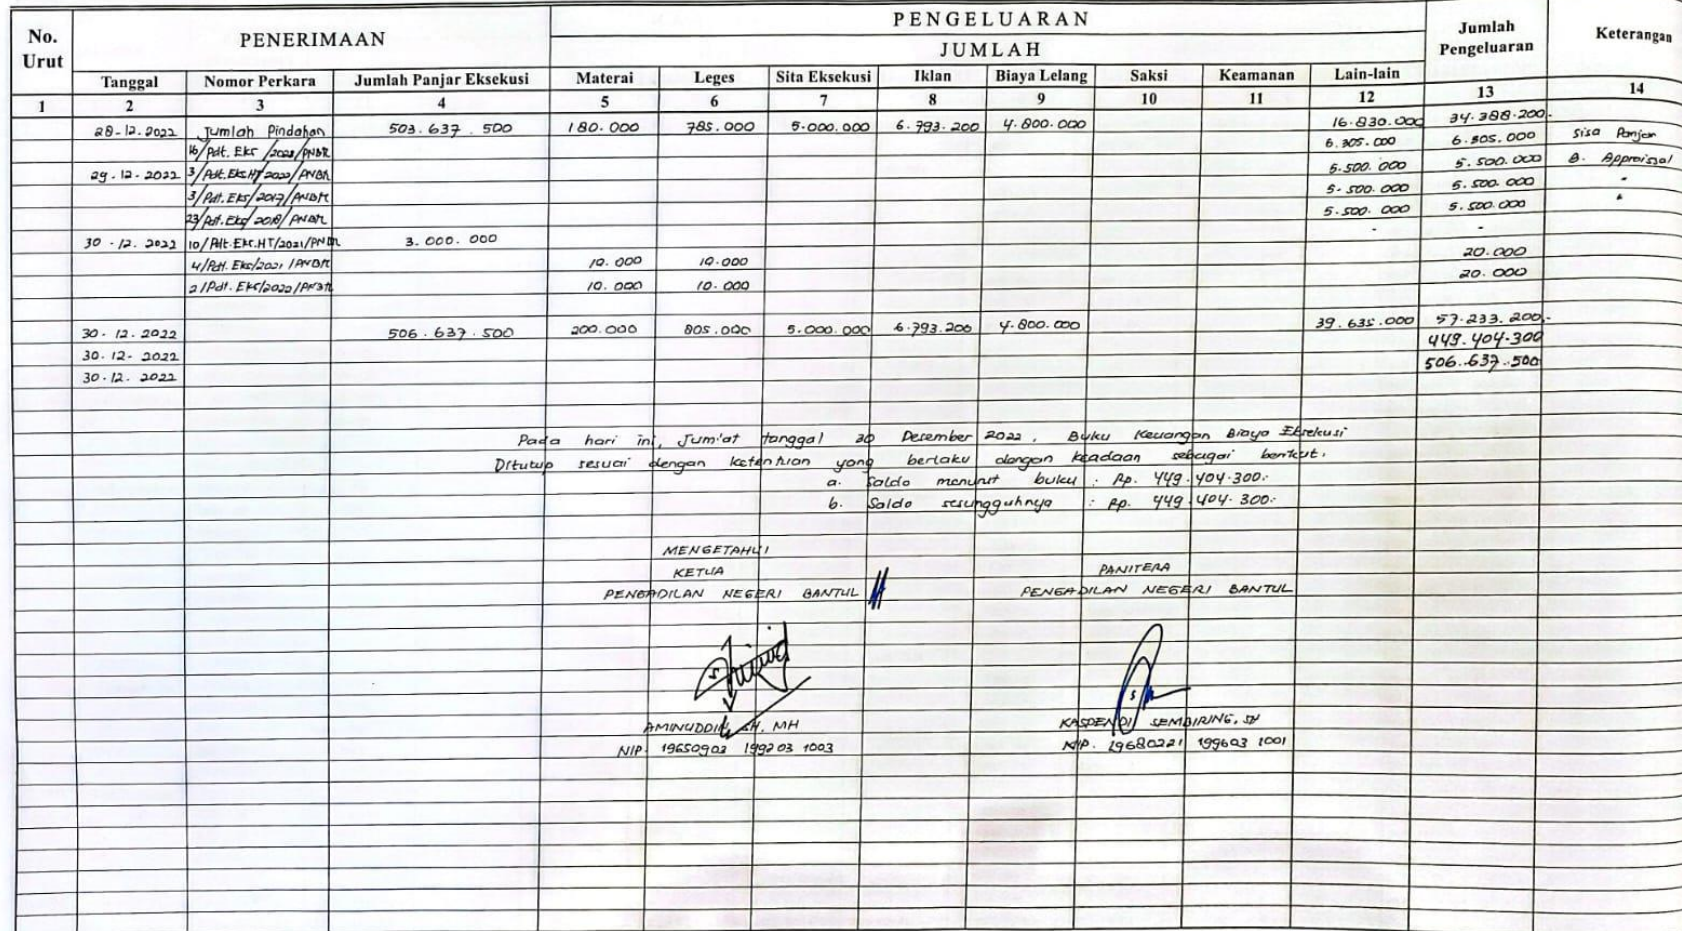 No. Urut PENERIMAAN PENGELUARAN Jumlah Pengeluaran Keterangan
JUMLAH
Tanggal Nomor Perkara Jumlah Panjar Eksekusi Materai Leges Sita Eksekusi Iklan Biaya Lelang Saksi Keamanan Lain-lain
1 2 3 4 5 6 7 8 9 10 11 12 13 14
28-12.2022 Jumlah Pindahan 503.637.500 180.000 785.000 5.000.000 6.793.200 4.800.000 16.830.000 34.388.200.
16/Pdt.Eks/2022/PNBtl 6.305.000 6.305.000 Sisa Panjar
29-12-2022 3/Pdt.Eks.HT/2022/PNBtl 5.500.000 5.500.000 B. Appraisal
3/Pdt.Eks/2017/PNBtl 5.500.000 5.500.000 "
23/Pdt.Eks/2018/PNBtl 5.500.000 5.500.000 "
30-12.2022 10/Pdt.Eks.HT/2021/PNBtl 3.000.000 - -
4/Pdt.Eks/2021/PNBtl 10.000 10.000 20.000
2/Pdt.Eks/2022/PNBtl 10.000 10.000 20.000
30-12.2022 506.637.500 200.000 805.000 5.000.000 6.793.200 4.800.000 39.635.000 57.233.200,-
30.12-2022 449.404.300
30.12.2022 506.637.500
Pada hari ini, Jum'at tanggal 30 Desember 2022, Buku Keuangan Biaya Eksekusi
Ditutup sesuai dengan ketentuan yang berlaku dengan keadaan sebagai berikut.
a. Saldo menurut buku : Rp. 449.404.300.-
b. Saldo sesungguhnya : Rp. 449.404.300.-
MENGETAHUI
KETUA PANITERA
PENGADILAN NEGERI BANTUL PENGADILAN NEGERI BANTUL
AMINUDDIN, SH. MH KASDENDI SEMBIRING, SH
NIP. 19650903 199203 1003 NIP. 19680221 199603 1001